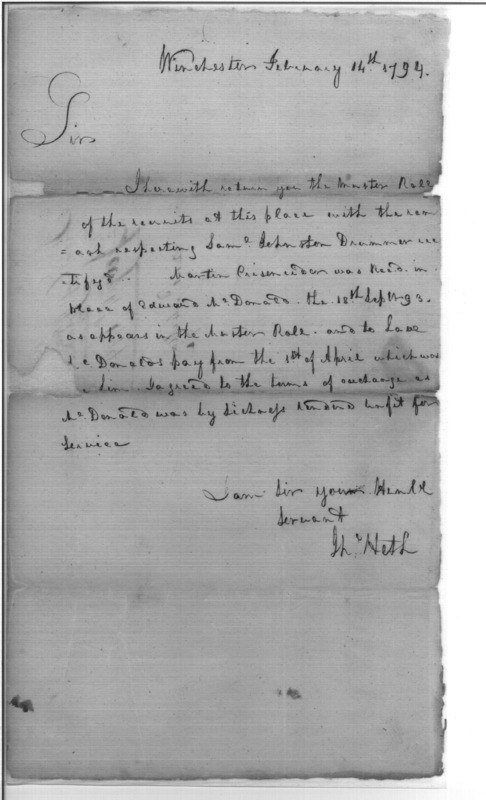 Winchester February 14th 1794.
Sir
I herewith return you the Muster Roll
of the recruits at this place with the rem
=ark respecting Saml Johnston Drummer rec
tifyd. Martin was Recd. in
place of Edward Mc Donald. the 18th Sept. 1793.
as appears in the Muster Roll. and to have
Mc Donalds pay from the 1st of April which was
I agreed to the terms of exchange as
Mc Donald was by Sickness rendered unfit for
Service
I am Sir your Humble
Servant
Heth